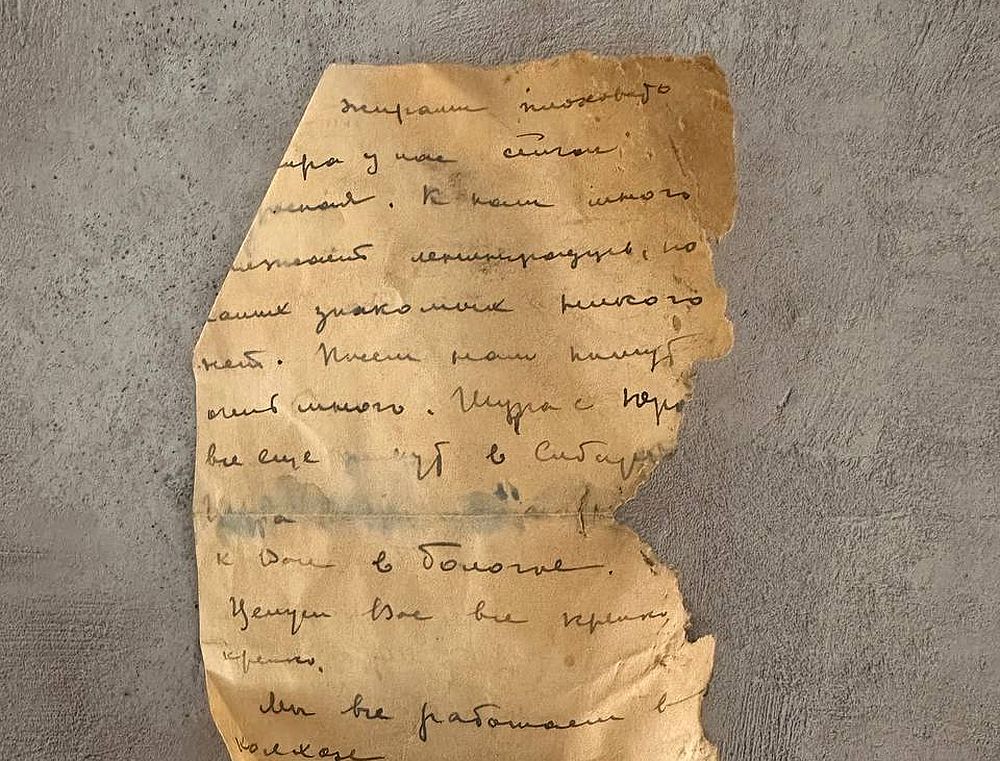 жирами плоховато
ира у нас
. К нам много
ленинградцев, но
наших знакомых никого
нет. Писем нам пишут
очень много. Шура с Юро
все еще живут в Сибири
Шура
к Вам в Бологое.
Целуем Вас все крепко
крепко.
Мы все работаем в
колхозе